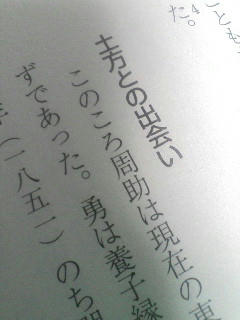 ことも
た。4
土方との出会い
このころ周助は現在の東
ずであった。勇は養子縁
年(一八五一)のち間